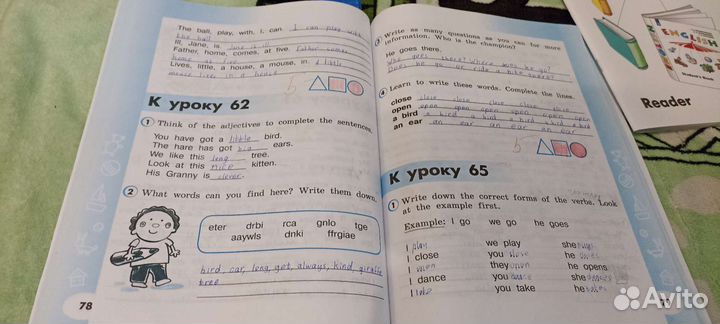 The ball, play, with, I, can I can play with
the ball
Ill, Jane, is. Jane is ill
Father, home, comes, at five. Father comes
home at five
Lives, little, a house, a mouse, in. A little
mouse lives in a house
5
К уроку 62
1 Think of the adjectives to complete the sentences.
You have got a little bird.
The hare has got big ears.
We like this long tree.
Look at this nice kitten.
His Granny is clever.
2 What words can you find here? Write them down.
eter drbi rca gnlo tge
aaywls dnki ffrgiae
bird, car, long, get, always, kind, giraffe
tree
78
3 Write as many questions as you can for more
information. Who is the champion?
He goes there.
Who goes there? Where does he go?
Does he go or ride a bike there?
4 Learn to write these words. Complete the lines.
close close close close close close
open open open open open open open
a bird a bird a bird a bird a bird a bird
an ear an ear an ear an ear
5
К уроку 65
1 Write down the correct forms of the verbs. Look
at the example first.
Example: I go we go he goes
I play we play she plays
I close you close he closes
I open they open he opens
I dance you dance she dances
I take you take he takes
ENGLISH
Reader
Avito